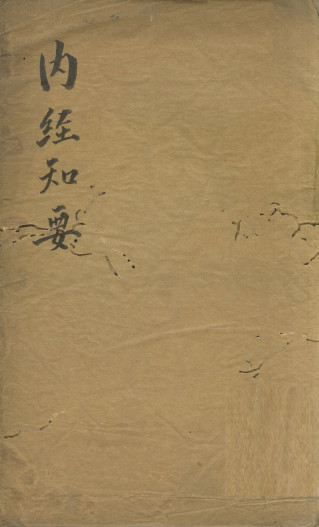 内经知要